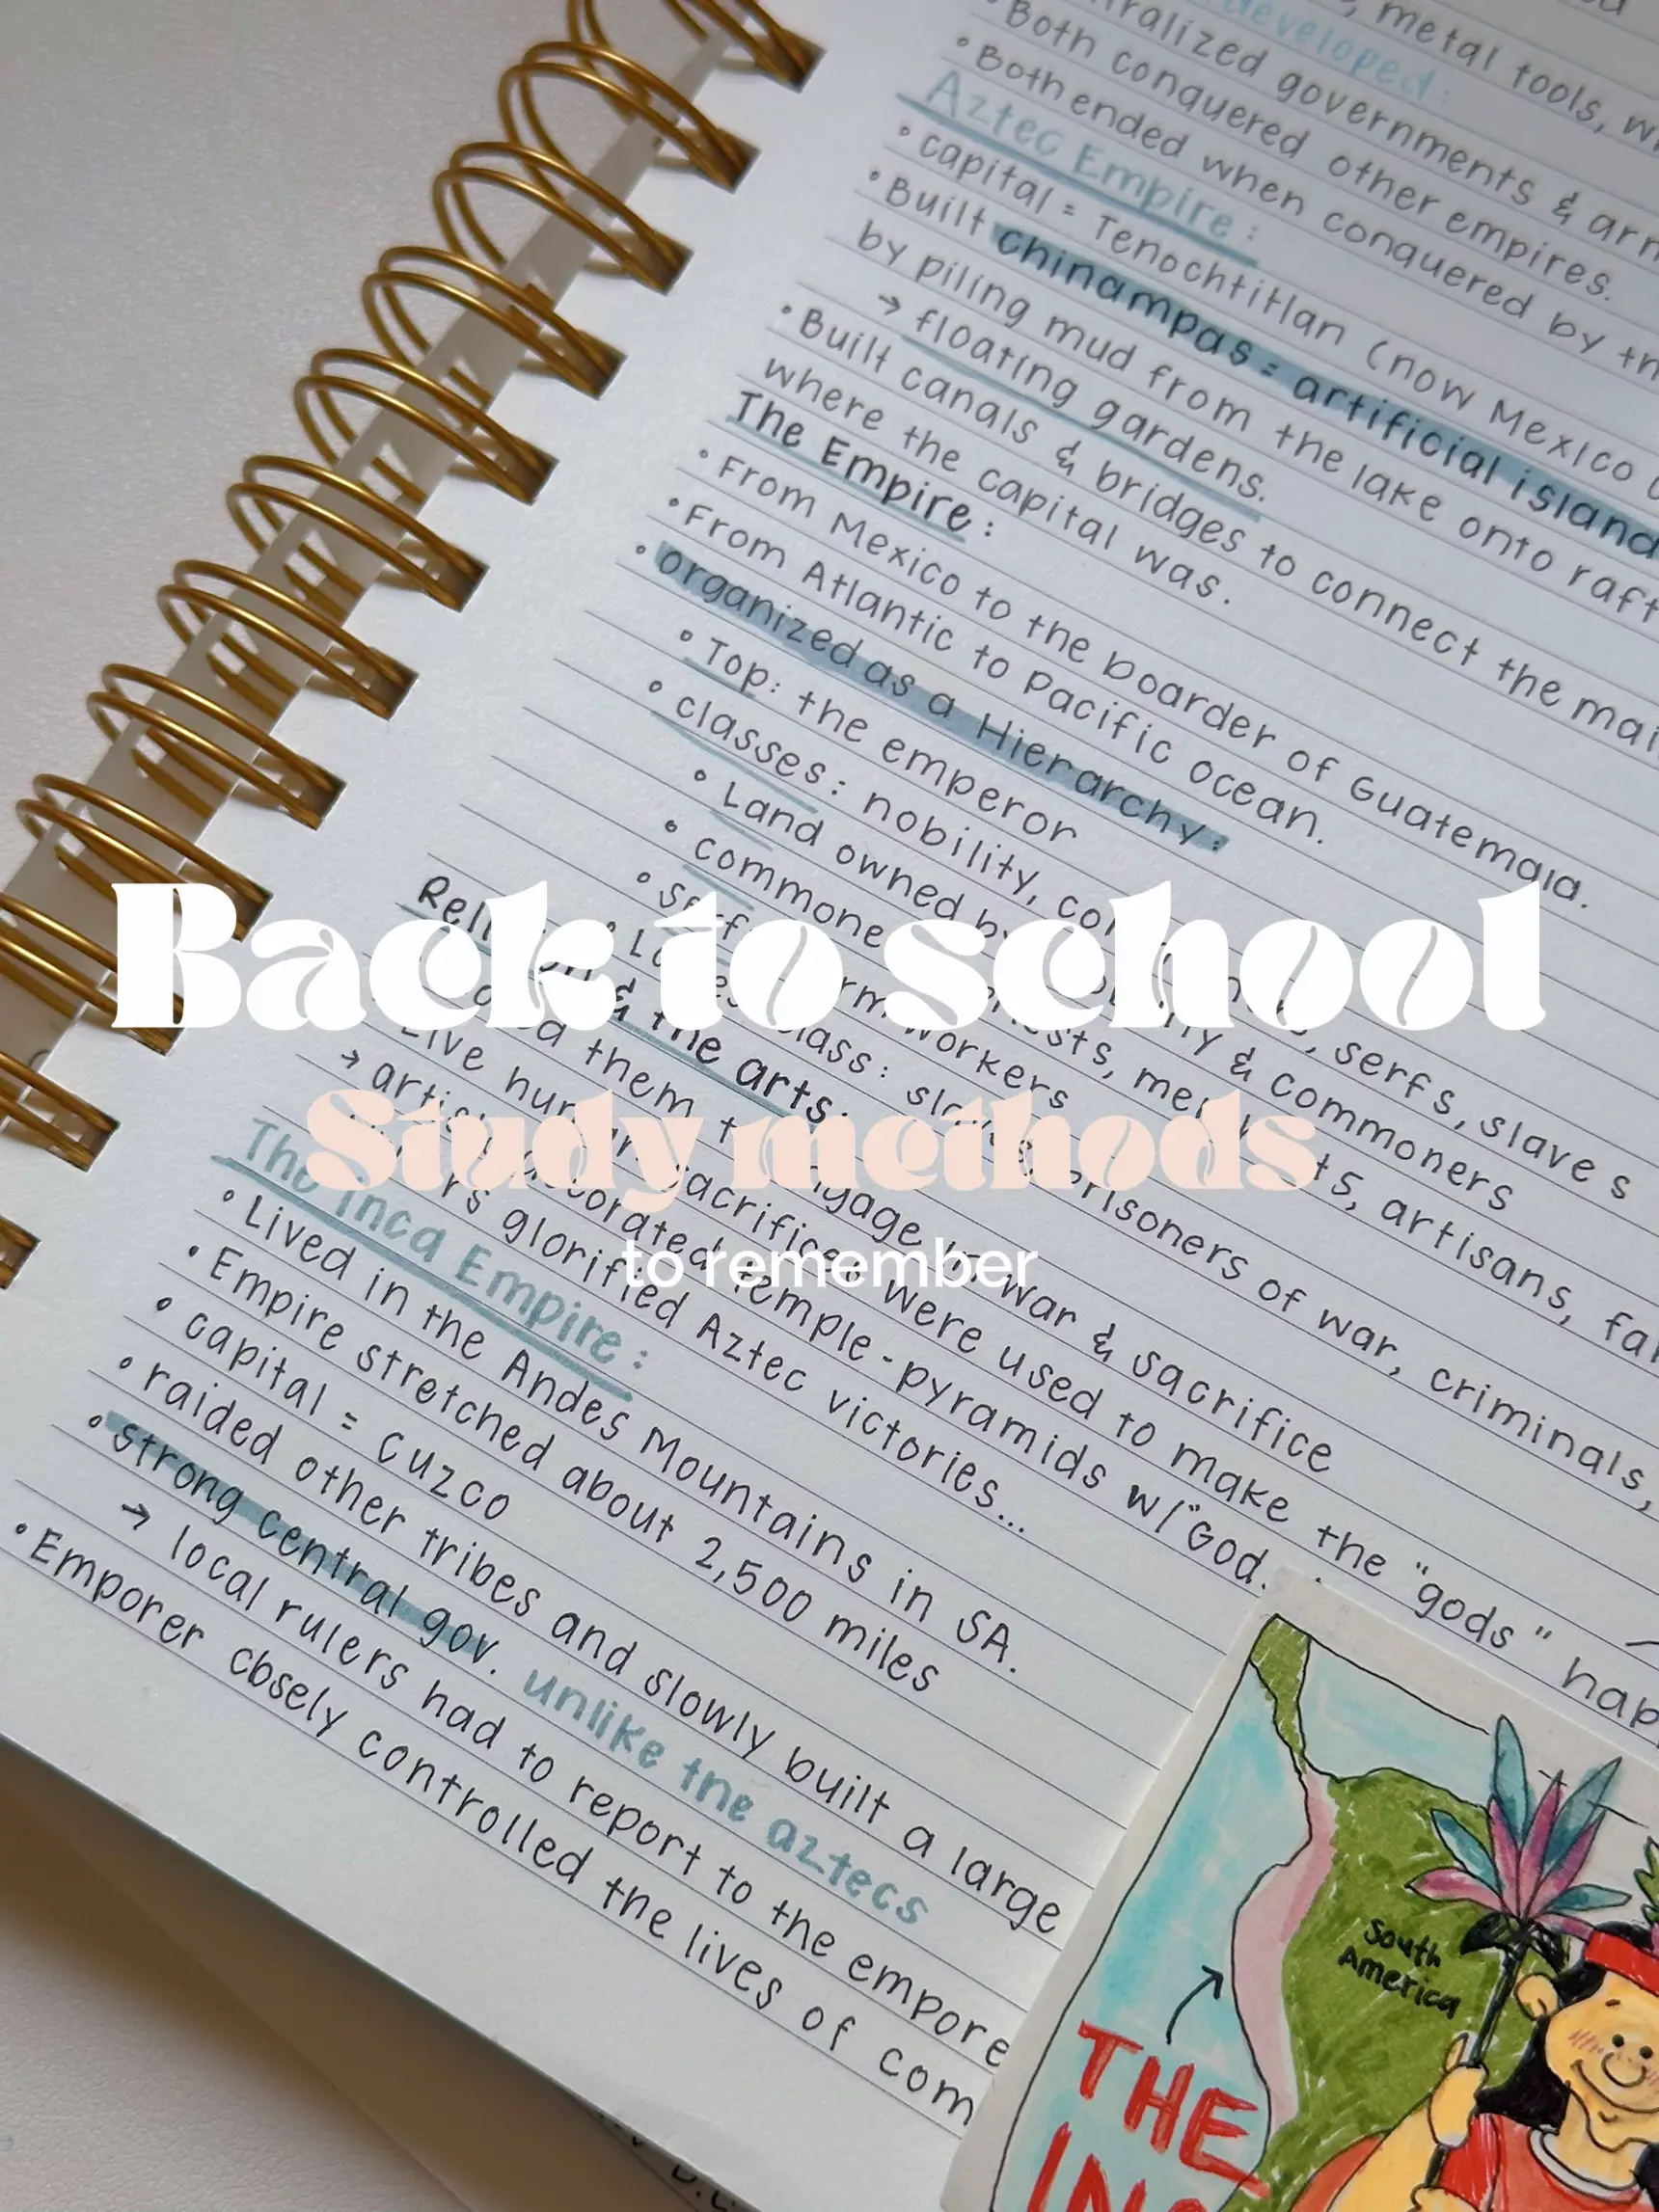 metal tools,
developed:
ralized governments &
Both conquered other empires.
Both ended when conquered by
Aztec Empire:
capital = Tenochtitlan (now Mexico
Built chinampas = artificial island
by piling mud from the lake onto raft
→ floating gardens.
Built canals & bridges to connect the
where the capital was.
The Empire:
From Mexico to the boarder of Guatemala.
From Atlantic to Pacific ocean.
organized as a Hierarchy:
Top: the emperor
classes: nobility, serfs, slaves
Land owned & commoners
artisans,
workers
class: prisoners of war, criminals,
Back to school
& the arts:
them war & sacrifice
Live sacrifices were used to make the "gods"
→ temple-pyramids w/"God
glorified Aztec victories...
Study methods
to remember
The Inca Empire:
Lived in the Andes Mountains in SA.
Empire stretched about 2,500 miles
capital = cuzco
raided other tribes and slowly built a large
strong central gov. unlike the aztecs
→ local rulers had to report to the empore
Emporer cbsely controlled the lives of com
South
America
THE